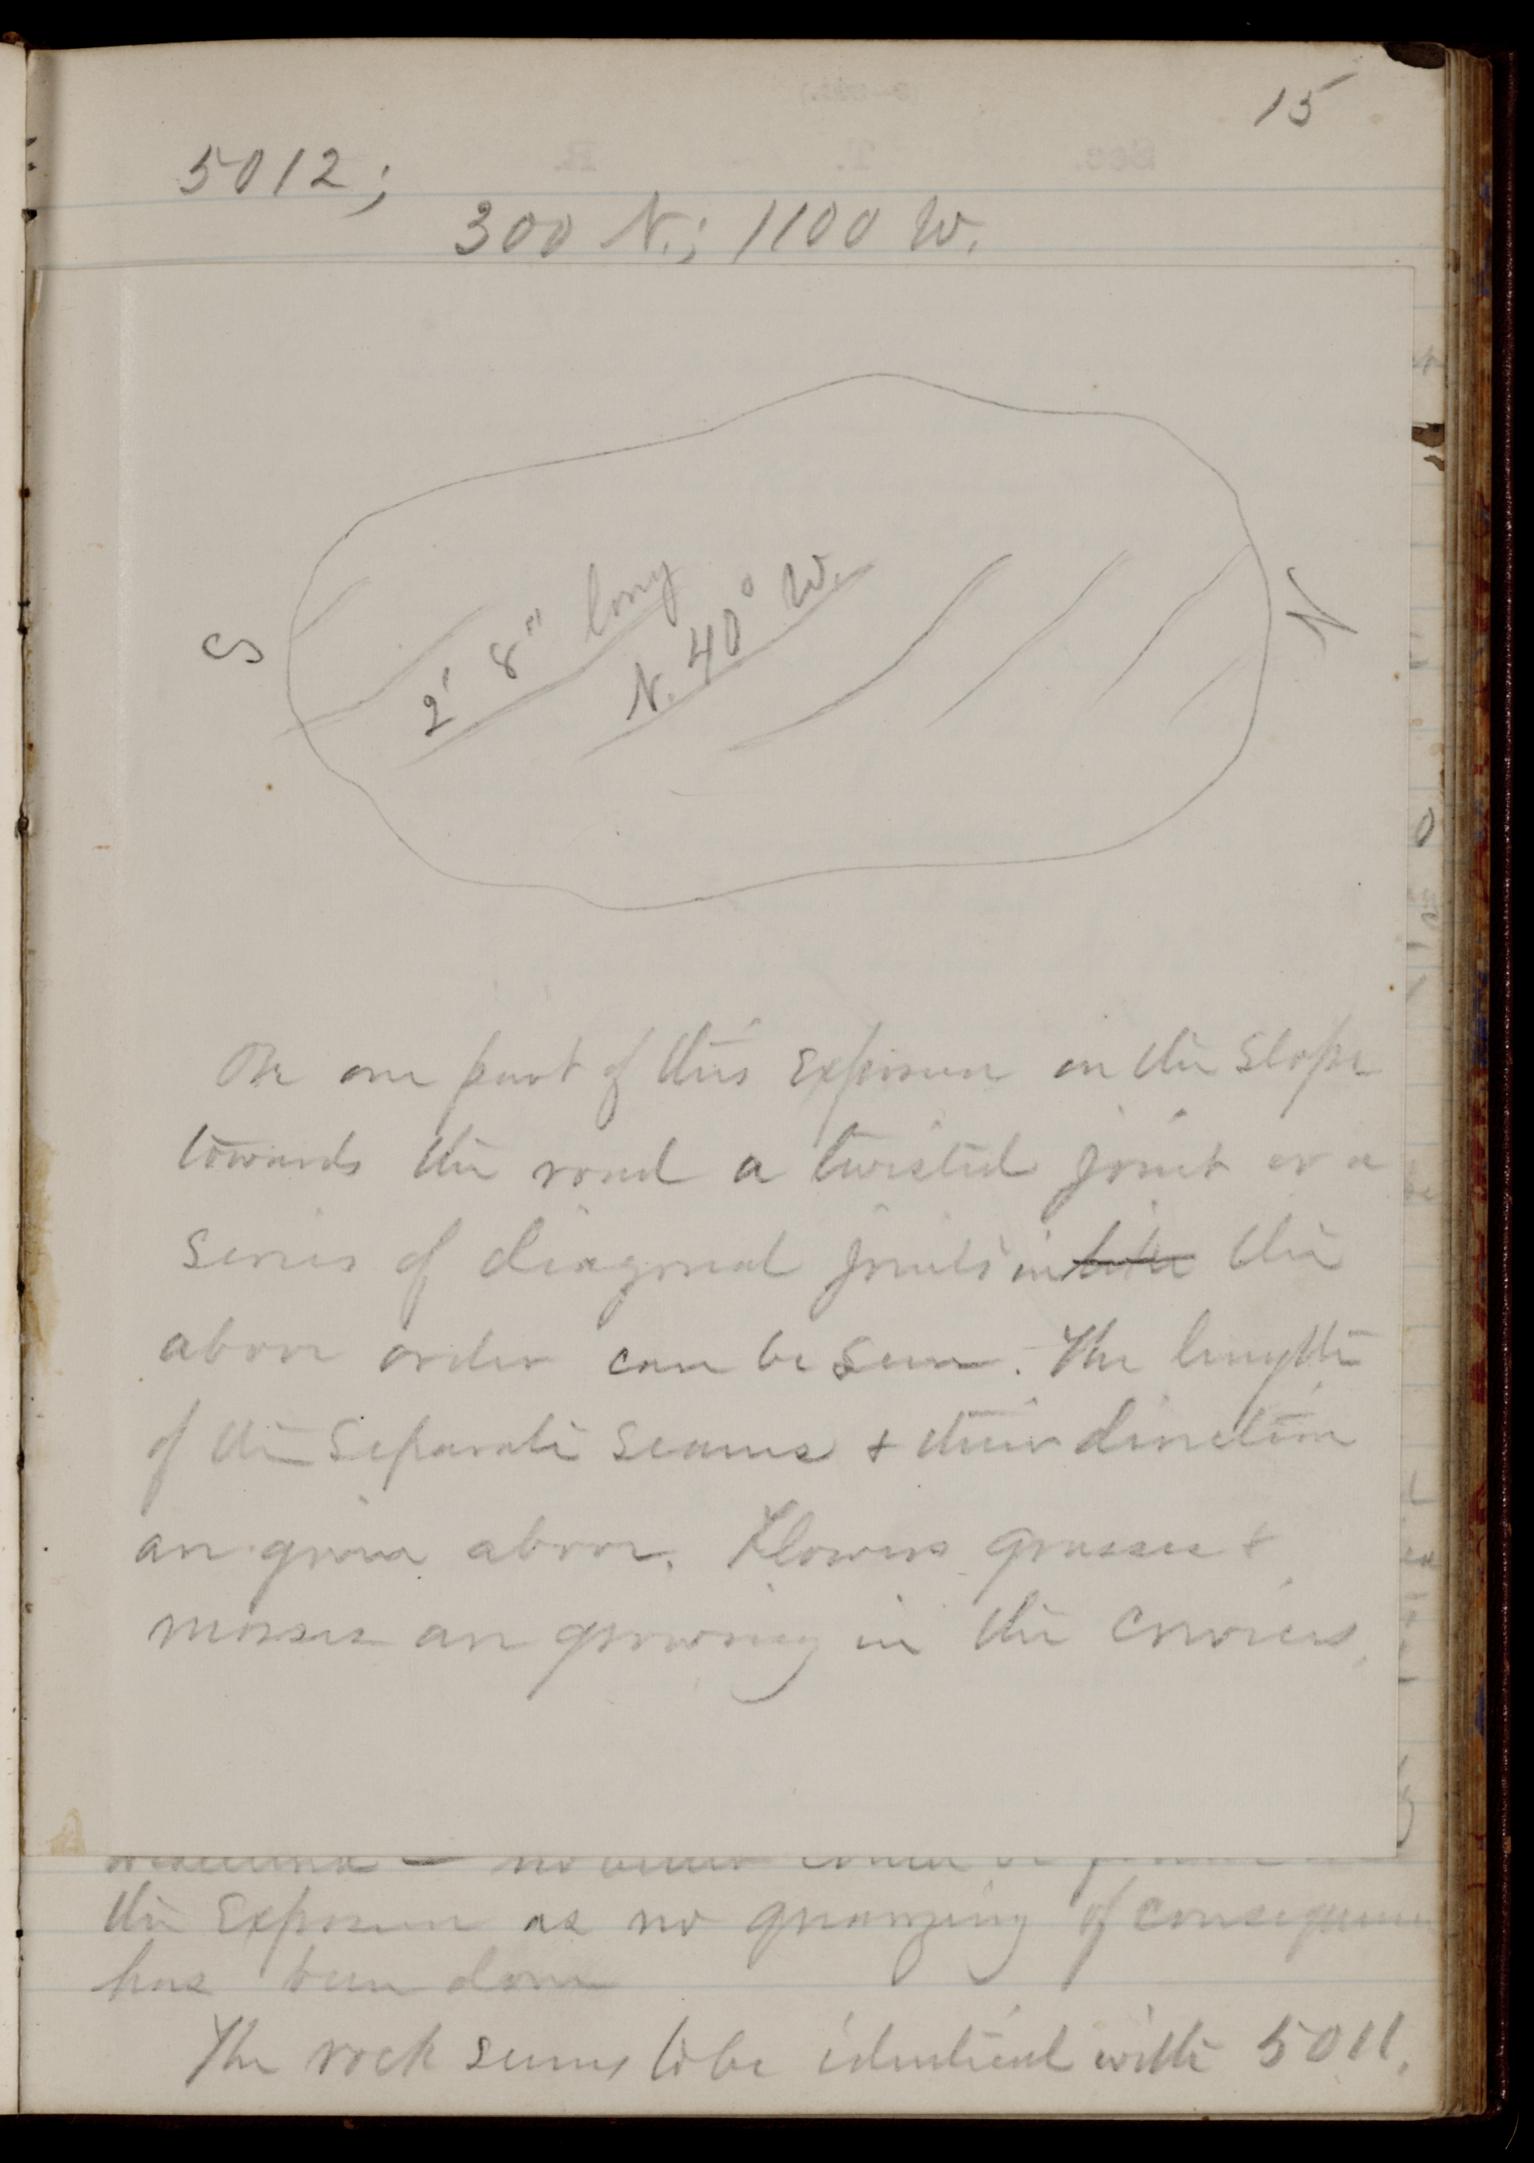 15
5012;
300 N.; 1100 W.
S
2' 8" long
N. 40° W.
N
On one part of this exposure on the slope
towards the road a twisted joint or a
series of diagonal joints in the
above order can be seen. The length
of the separate seams & their direction
are given above. Flowers grasses &
mosses are growing in the crevices.
the exposure as no quarrying of consequence
has been done
The rock seems to be identical with 5011.